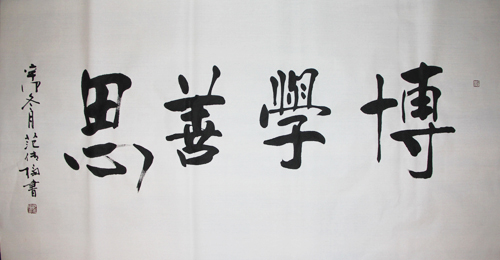 博學善思
冬月范书